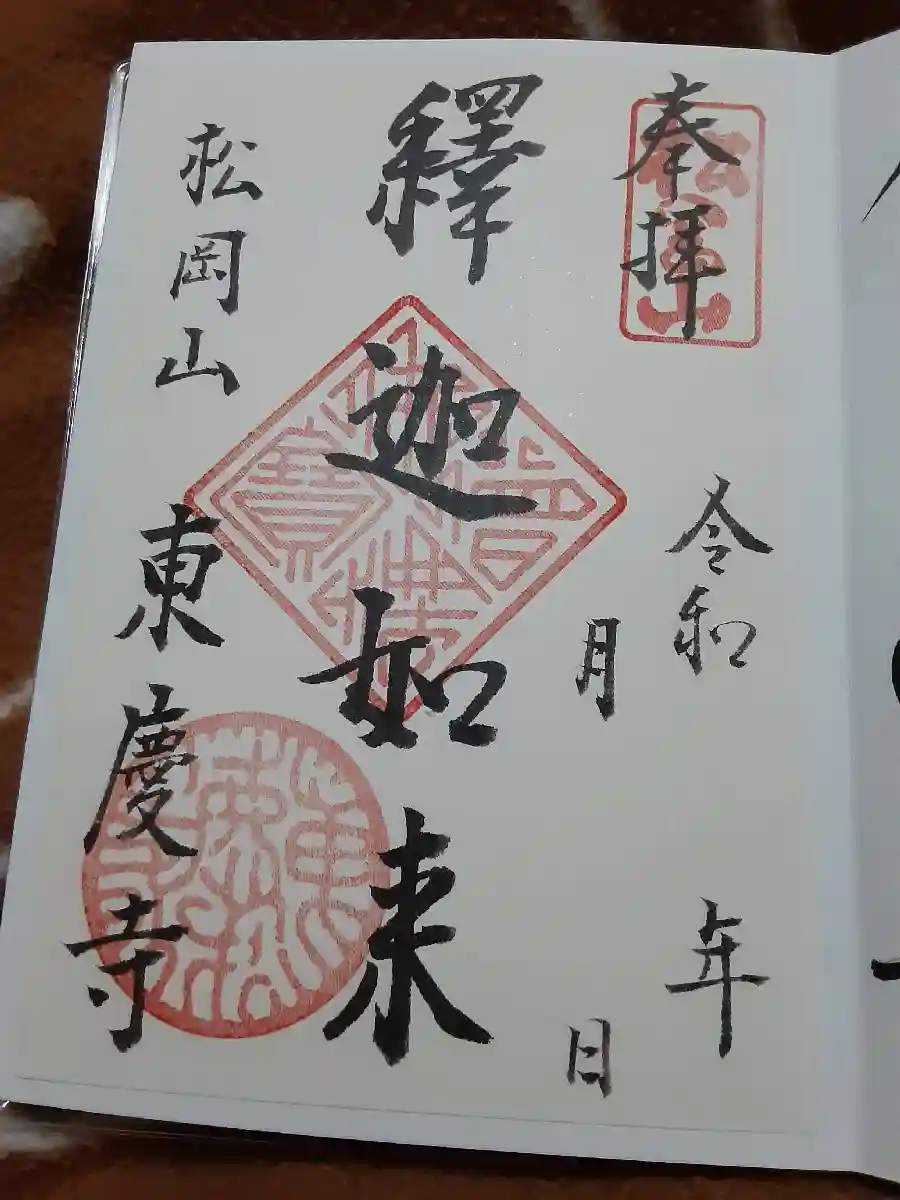 奉拝
松岡山
令和 年
月 日
釋迦如来
松岡山
東慶寺